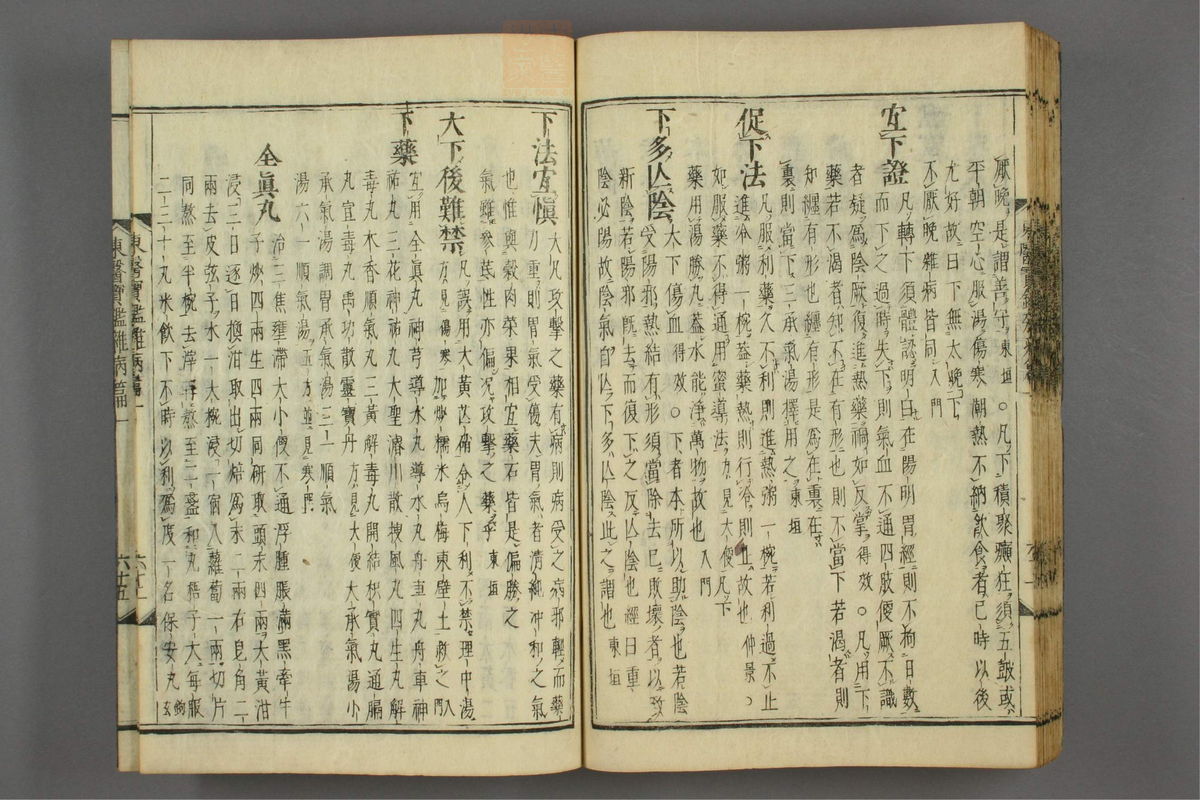 厭晚是謂善守東垣○凡下積聚癲狂須五皷或
平朝空心服湯傷寒潮熱不納飲食者巳時以後
尤好故曰下無太晚下
不厭晚雜病皆同入門
宜下證
凡轉下須體認明白在陽明胃經則不拘日數
而下之過時失下則氣血不通四肢便厥不識
者疑爲陰厥復進熱藥禍如反掌得效○凡用下
藥若不渴者知不在有形也則不當下若渴者則
知纏有形也纏有形是爲在裏在
裏則當下三承氣湯擇用之東垣
促下法
凡服利藥久不利則進熱粥一椀若利過不止
進冷粥一椀盖藥熱則行冷則止故也仲景○
如服藥不得通用蜜導法方見大便凡下
藥用湯勝丸盖水能淨萬物故也入門
下多亾陰
大下傷血得效○下者本所以助陰也若陰
受陽邪熱結有形須當除去已敗壞者以致
新陰若陽邪旣去而復下之反亾陰也經曰重
陰必陽故陰氣自亾下多亾陰此之謂也東垣
下法宜愼
大凡攻擊之藥有病則病受之病邪輕而
力重則胃氣受傷夫胃氣者清純冲和之氣
也惟與穀肉菓果相宜藥石皆是偏勝之
氣雖參芪性亦偏况攻擊之藥乎東垣
大下後難禁
凡誤用大黃芒硝令人下利不禁理中湯
方見傷寒加炒糯米烏梅東壁土救之入門
下藥
宜用全眞丸神芎導水丸導水丸舟車丸舟車神
祐丸三花神祐丸大聖濬川散搜風丸四生丸解
毒丸木香順氣丸三黃解毒丸開結枳實丸通膈
丸宣毒丸禹功散靈寶丹方見大便大承氣湯小
承氣湯調胃承氣湯三一順氣
湯六一順氣湯五方並見寒門
全眞丸
治三焦壅滯大小便不通浮腫脹滿黑牽牛
子炒四兩生四兩同研取頭末四兩大黃泔
浸三日逐日換泔取出切焙爲末二兩右皂角二
兩去皮弦子水一大椀浸一宿入蘿蔔一兩切片
同熬至半椀去滓再熬至二盞和丸梧子大每服
二三十丸米飮下不時以利爲度一名保安丸鉤玄
東醫寶鑑雜病篇一
六十五
東醫寶鑑雜病篇一